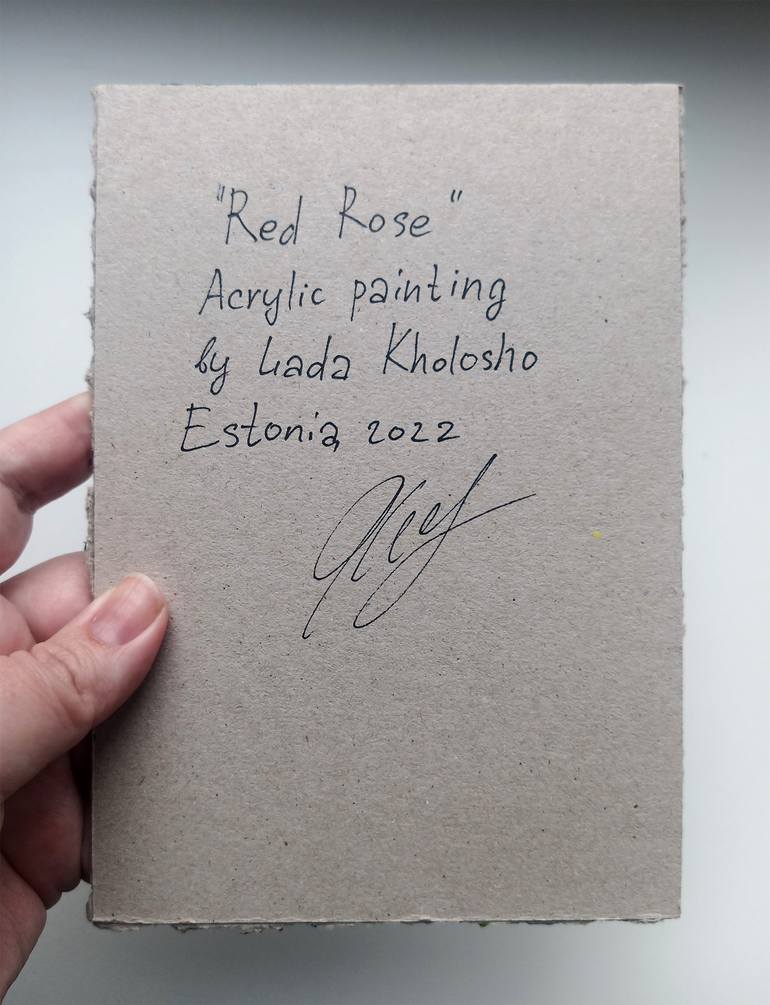 "Red Rose"
Acrylic painting
by Lada Kholosho
Estonia, 2022